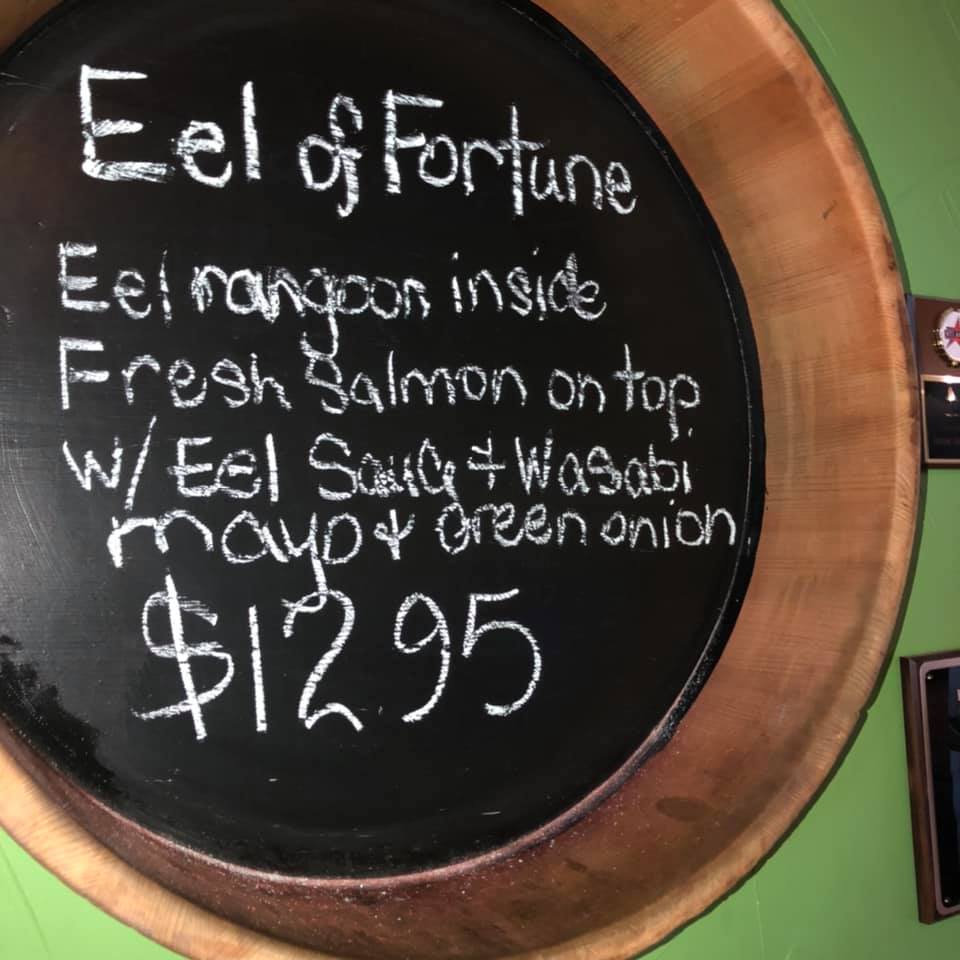 Eel of Fortune
Eel rangoon inside
Fresh Salmon on top
w/ Eel Sauce + Wasabi
mayo + green onion
$12 95